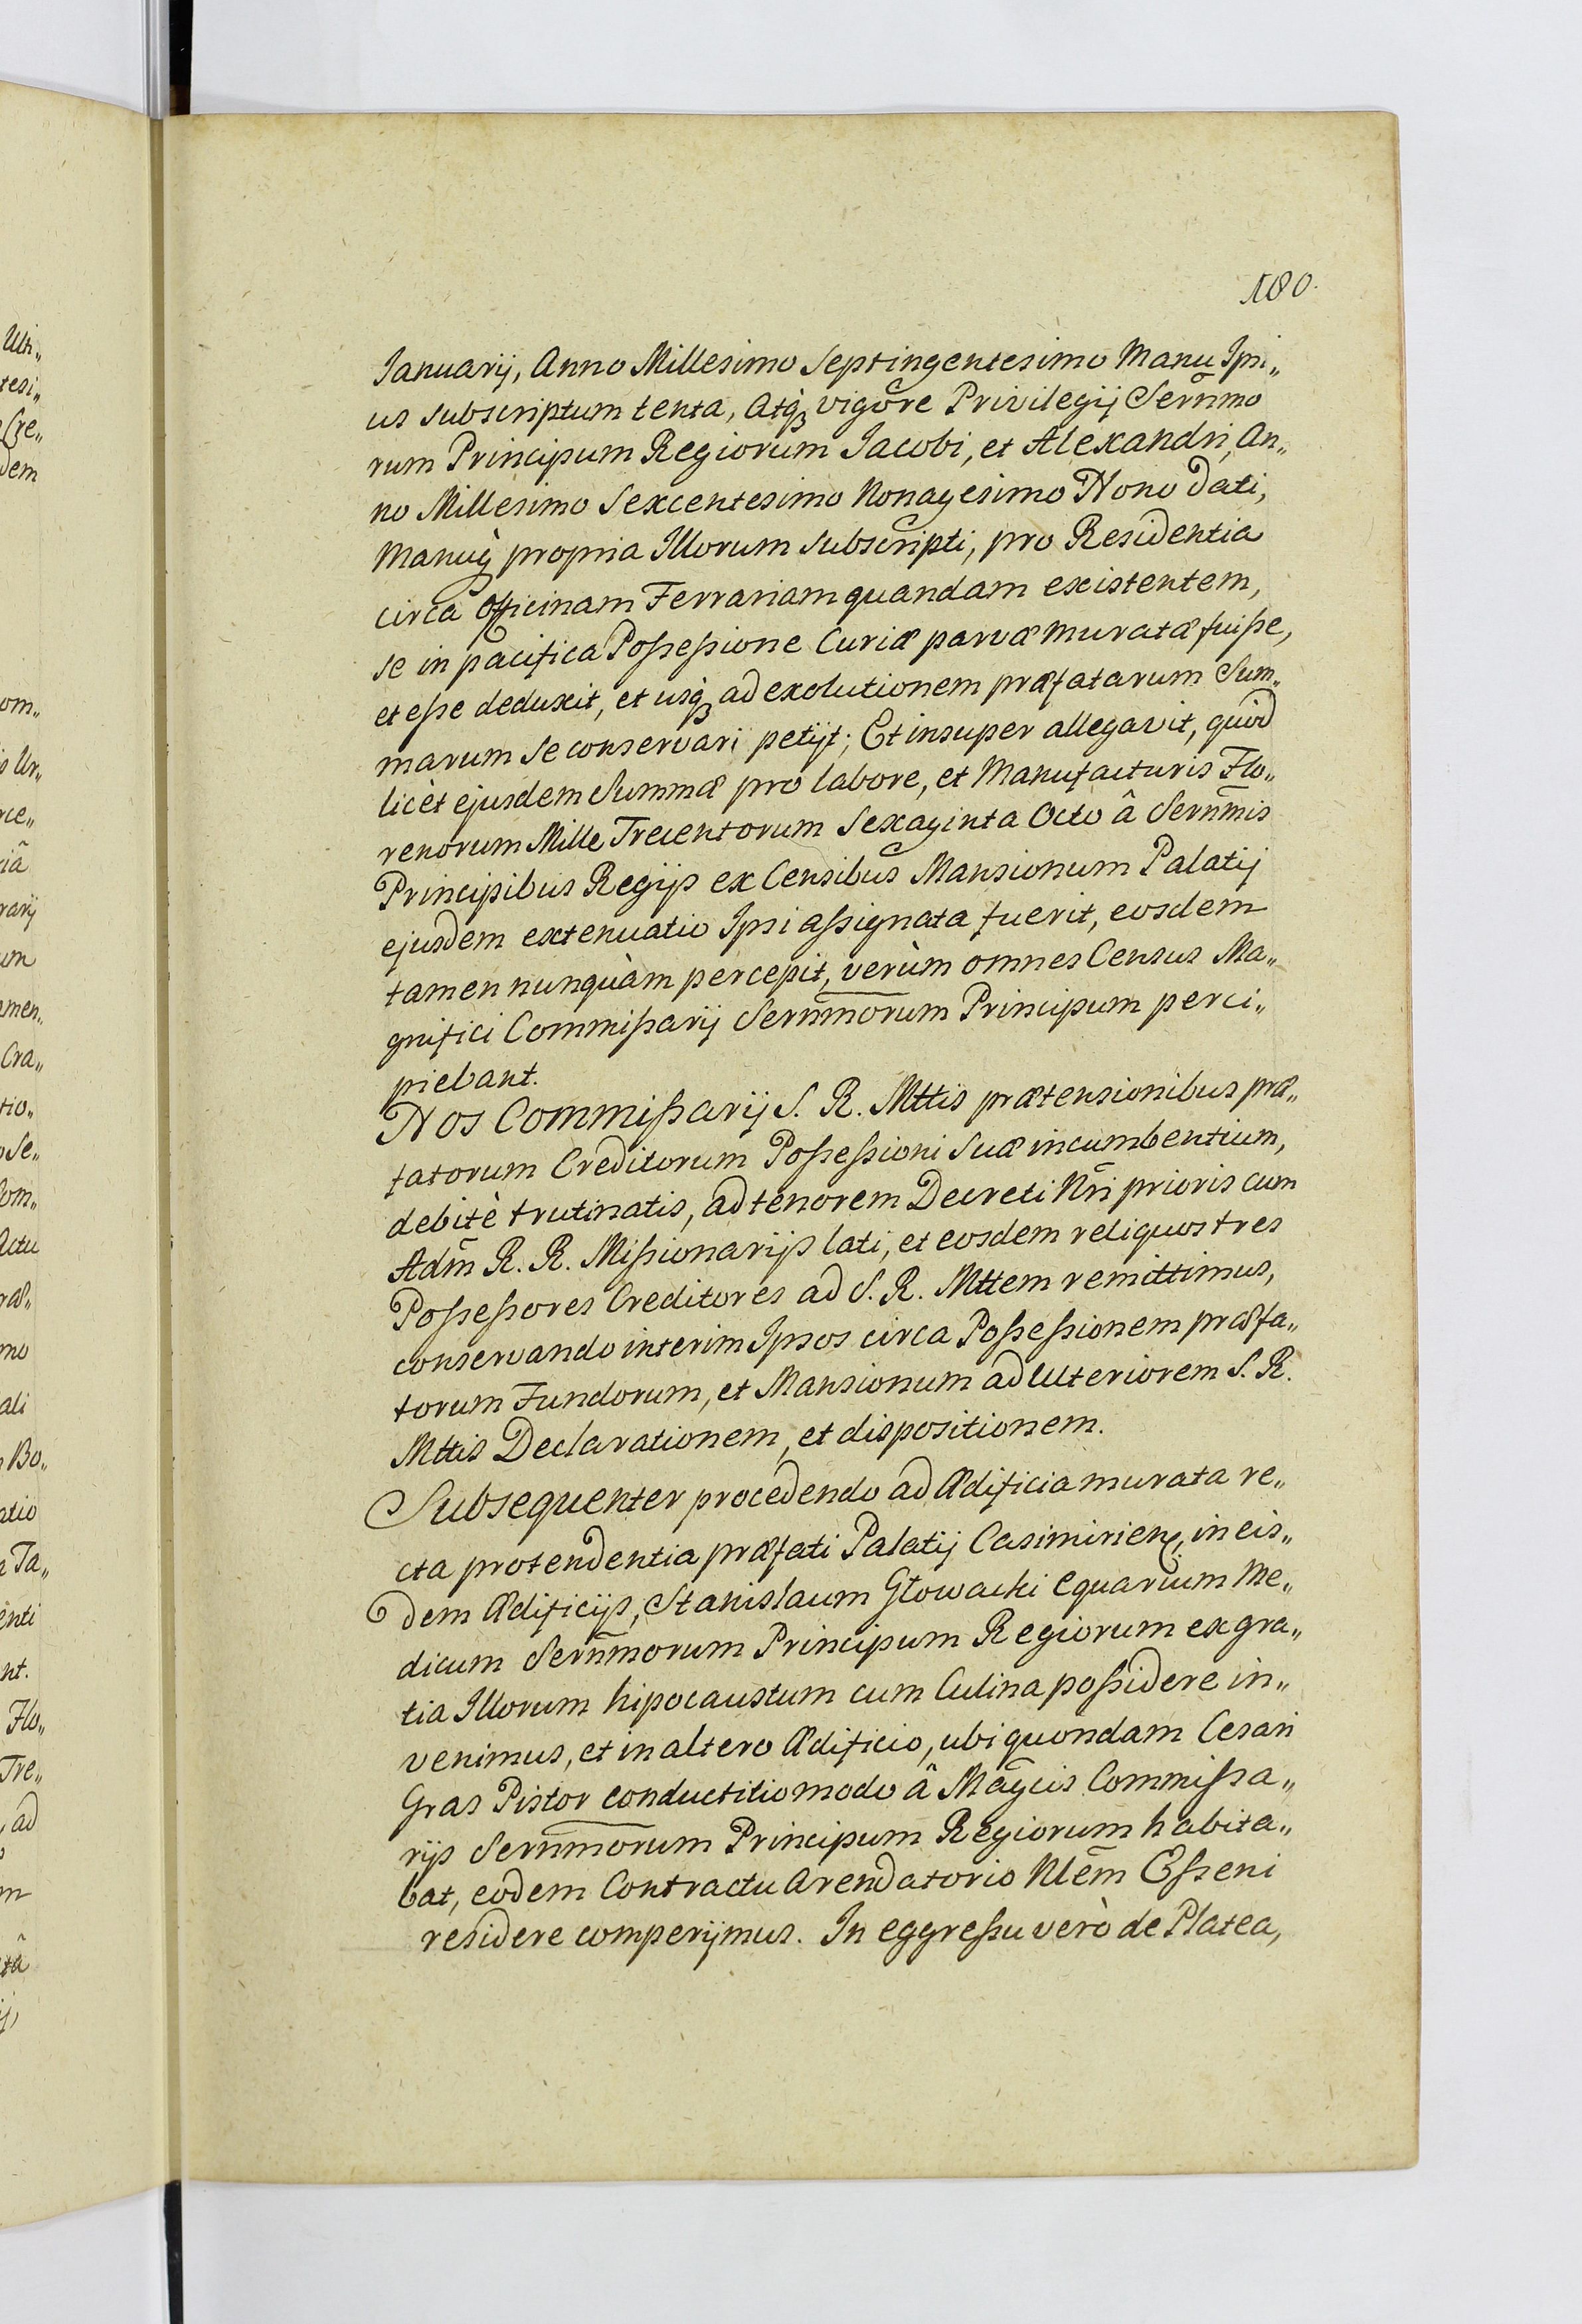 180.
Januarij, Anno Millesimo Septingentesimo Manu Ipsi„
us subscriptum tenta, Atq; vigore Privilegij Sernm̄o
rum Principum Regiorum Jacobi, et Alexandri, An„
no Millesimo Sexcentesimo Nonagesimo Nono Dati,
Manuq; propria Illorum subscripti, pro Residentia
circa Officinam Ferrariam quandam existentem,
se in pacifica Poſseſsione Curiæ parvæ muratæ fuiſse,
et eſse deduxit, et usq; ad exolutionem præfatarum Sum„
marum se conservari petijt; Et insuper allegavit, quòd
licèt ejusdem Summæ pro labore, et Manufacturis Flo„
renorum Mille Trecentorum Sexaginta Octo â Sernm̄is
Principibus Regijs ex Censibus Mansionum Palatij
ejusdem extenuatio Ipsi aſsignata fuerit, eosdem
tamen nunquàm percepit, verùm omnes Census Ma„
gnifici Commiſsarij Sernm̄orum Principum perci„
piebant.
Nos Commiſsarij S. R. Mttis prætensionibus præ„
fatorum Creditorum Poſseſsioni Suæ incumbentium,
debitè trutinatis, ad tenorem Decreti Nr̄i prioris cum
Adm̄ R. R. Miſsionarijs lati, et eosdem reliquos tres
Poſseſsores Creditores ad S. R. Mttem remittimus,
conservando interim Ipsos circa Poſseſsionem præfa„
torum Fundorum, et Mansionum ad Ulteriorem S. R.
Mttis Declarationem, et dispositionem.
Subsequenter procedendo ad Ædificia murata re„
cta protendentia præfati Palatij Casimirien:, in eis„
dem Ædificijs, Stanislaum Głowacki equarium Me„
dicum Sernm̄orum Principum Regiorum ex gra„
tia Illorum hipocaustum cum Culina poſsidere in„
venimus, et in altero Ædificio, ubi quondam Cesari
Gras Pistor conductitio modo â Māgcis Commiſsa„
rijs Sernm̄orum Principum Regiorum habita„
bat, eodem Contractu Arendatorio Nlēm Eſseni
residere comperijmus. In eggreſsu verò de Platea,